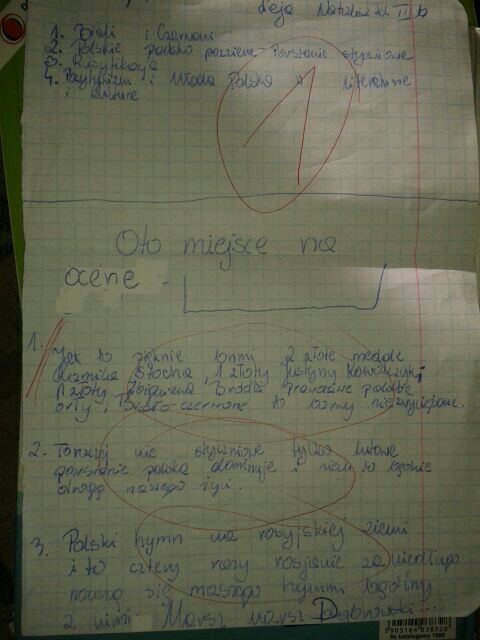 deja Natalia kl II b
1. Biali i Czerwoni
2. Polskie państwo podziemne - Powstanie styczniowe
3. Rusyfikacja
4. Pozytywizm i Młoda Polska w literaturze
i sztuce
1
Oto miejsce na
ocene -
1. Jak to pięknie brmi 2 złote medale
Kamila Stocha, 1 złoty Justyny Kowalczyk i
1 złoty Zbigniewa Brodki prawdziwe polskie
orły, Biało-czerwone to barwy niezwyciężone.
2. nie styczniowe tylko lutowe
powstanie polska dominuje i niem to będzie
naszego
3. Polski hymn na rosyjskiej ziemi
i to cztery razy rosjanie za niedługo
nauczą się naszego hymnu będziemy
z nimi Marsz marsz Dąbrowski....
5905184038359
Nr katalogowy 1008